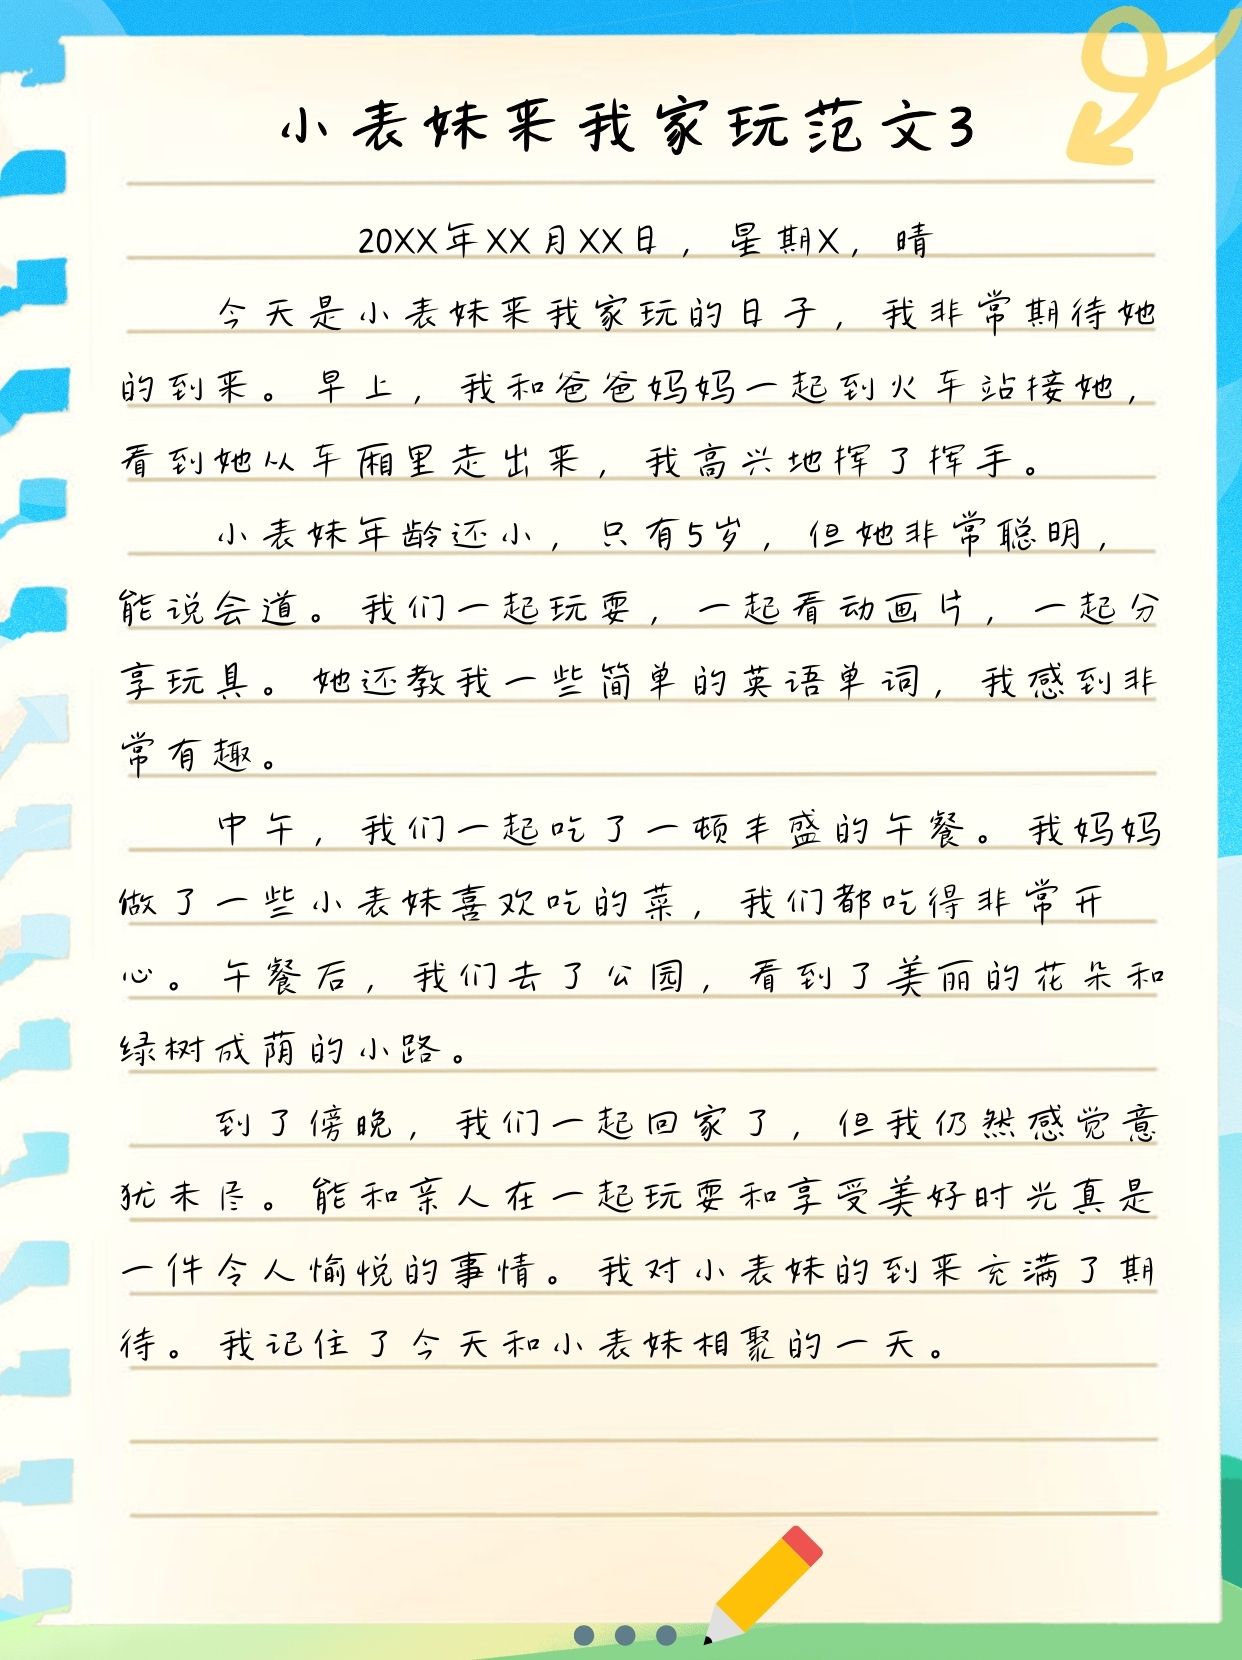 小表妹来我家玩范文3
20XX年XX月XX日，星期X，晴
今天是小表妹来我家玩的日子，我非常期待她
的到来。早上，我和爸爸妈妈一起到火车站接她，
看到她从车厢里走出来，我高兴地挥了挥手。
小表妹年龄还小，只有5岁，但她非常聪明，
能说会道。我们一起玩耍，一起看动画片，一起分
享玩具。她还教我一些简单的英语单词，我感到非
常有趣。
中午，我们一起吃了一顿丰盛的午餐。我妈妈
做了一些小表妹喜欢吃的菜，我们都吃得非常开
心。午餐后，我们去了公园，看到了美丽的花朵和
绿树成荫的小路。
到了傍晚，我们一起回家了，但我仍然感觉意
犹未尽。能和亲人在一起玩耍和享受美好时光真是
一件令人愉悦的事情。我对小表妹的到来充满了期
待。我记住了今天和小表妹相聚的一天。